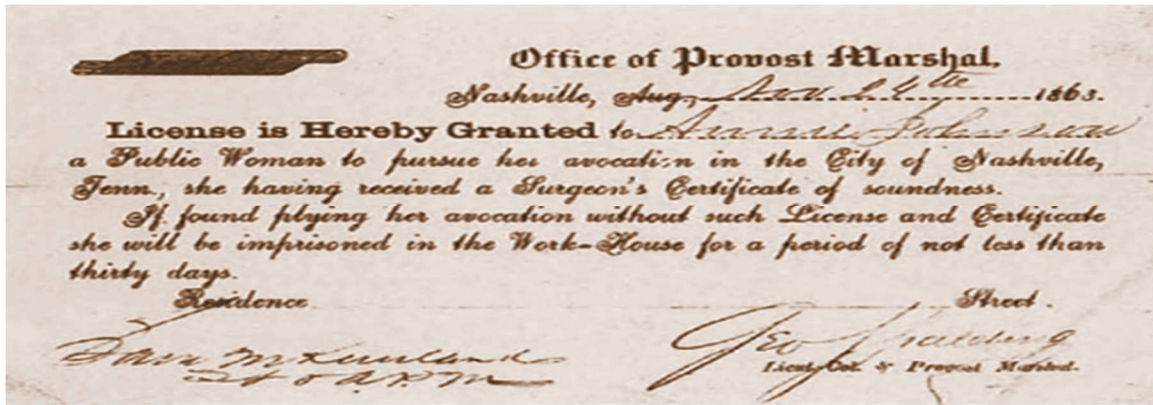 Office of Provost Marshal.
Nashville, Aug. Nov 24th 1863.
License is Hereby Granted to Annie Johnson
a Public Woman to pursue her avocation in the City of Nashville,
Tenn., she having received a Surgeon's Certificate of soundness.
If found plying her avocation without such License and Certificate
she will be imprisoned in the Work-House for a period of not less than
thirty days.
Residence Street.
Geo Spalding
Lieut. Col. & Provost Marshal.